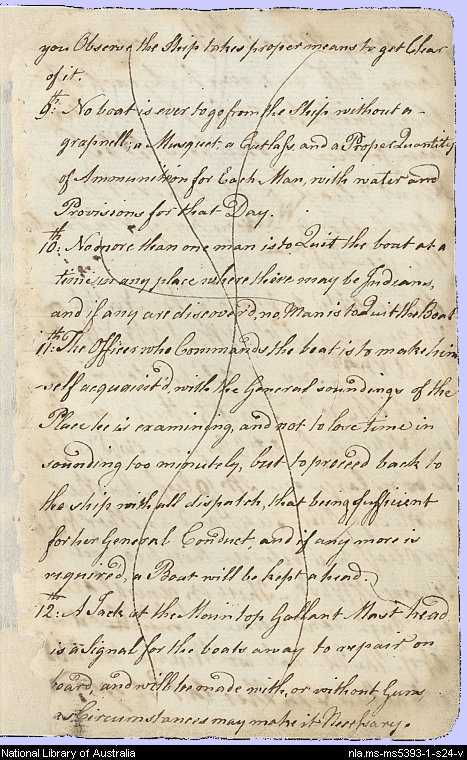 you Observe the Ship takes proper means to get Clear
of it.
9th: No boat is ever to go from the Ship without a
grapnell; a Musquet a Cutlass and a Proper Quantity
of Ammunition for Each Man, with water and
Provisions for that Day.
10th: No more than one man is to Quit the boat at a
time in any place where there may be Indians,
and if any are discover'd, no Man is to Quit the Boat
11th: The Officer who Commands the boat is to make him
self acquaint'd, with the General soundings of the
Place he is examining, and not to lose time in
sounding too minutely, but to proceed back to
the ship with all dispatch, that being sufficient
for her General Conduct, and if any more is
requir'd, a Boat will be kept ahead.
12th: A Jack at the Main top Gallant Mast head
is a Signal for the boats away to repair on
board, and will be made with, or without Guns
as Circumstances may make it Necessary.
National Library of Australia
nla.ms-ms5393-1-s24-v